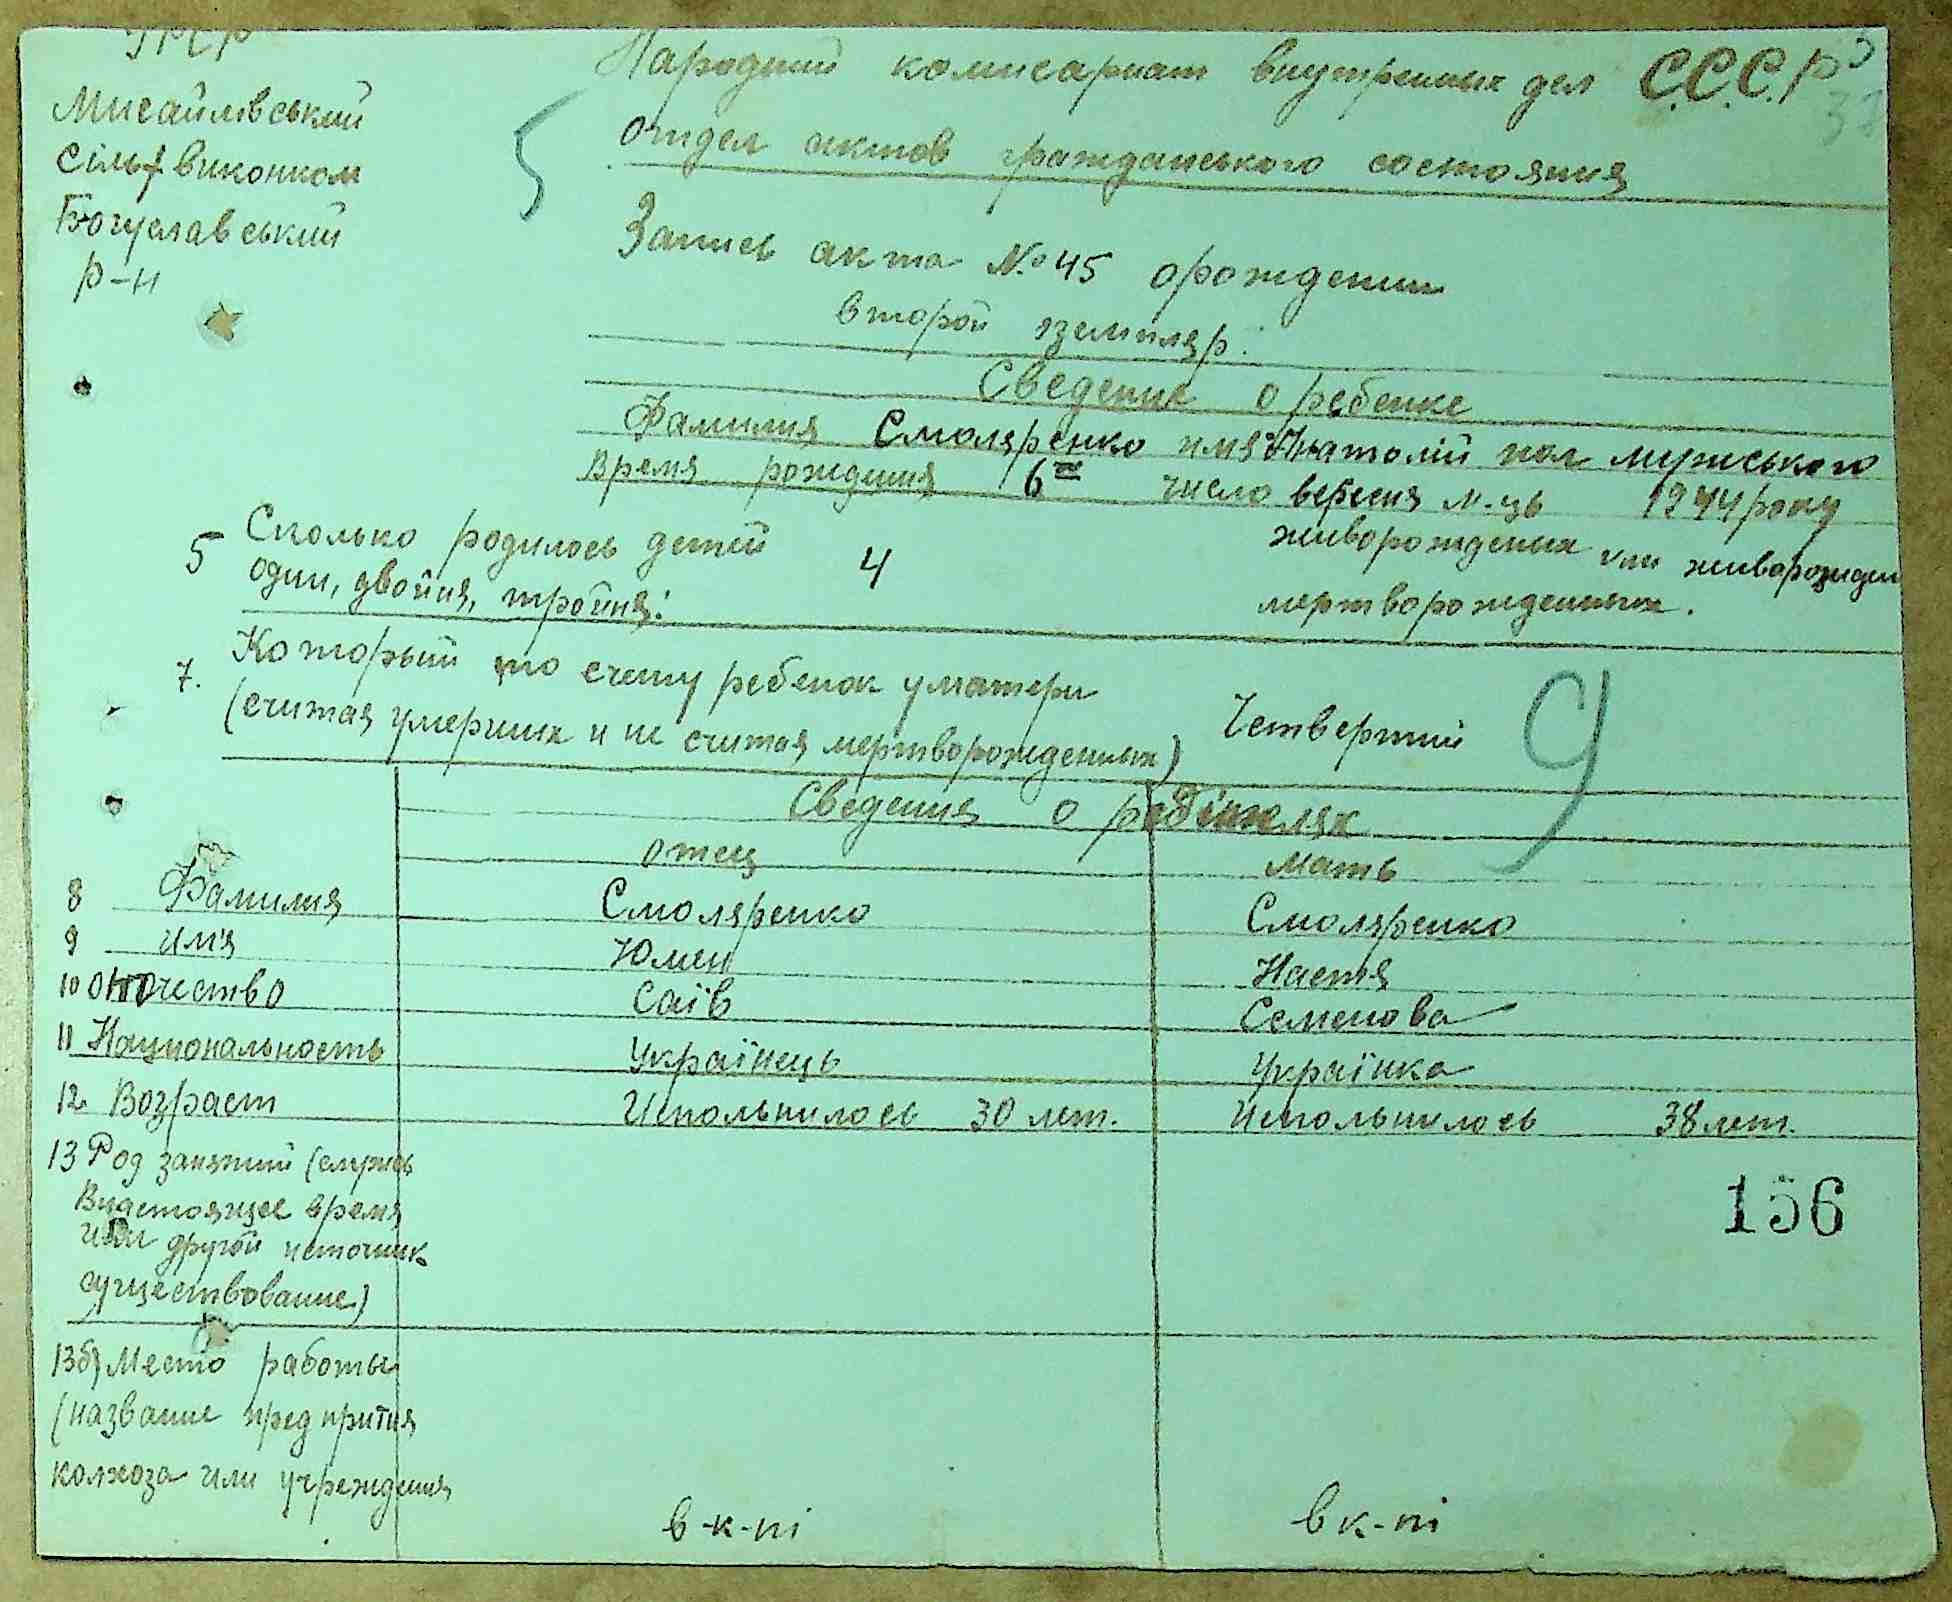 УРСР
Мисайлівський
Сільвиконком
Богуславський
р-н
5
Народний комисариат внутренних дел С.С.С.Р
отдел актов гражданського состояния
Запись акта №45 о рождении
второй эземпляр.
Сведения о ребенке
Фамилия Смоляренко имя Анатолій пол мужського
Время рождения 6го число вересня м-ць 1944 року
5 Сколько родилось детей 4 живорожденых или живорожден
один, двойня, тройня: мертворожденных.
7. Который по счету ребенок у матери Четвертий
(считая умерших и не считая мертворожденных)
9
Сведения о родителях
отец мать
8 Фамилия Смоляренко Смоляренко
9 имя Юмен Настя
10 отчество Саїв Семенова
11 Национальность Українець Українка
12 Возраст Испольнилось 30 лет. Испольнилось 38 лет.
13 Род занятий (служба
Внастоящее время
или другой источник
существование)
156
13б) Место работы
(название предпрития
колхоза или учреждения
в к-пі в к-пі